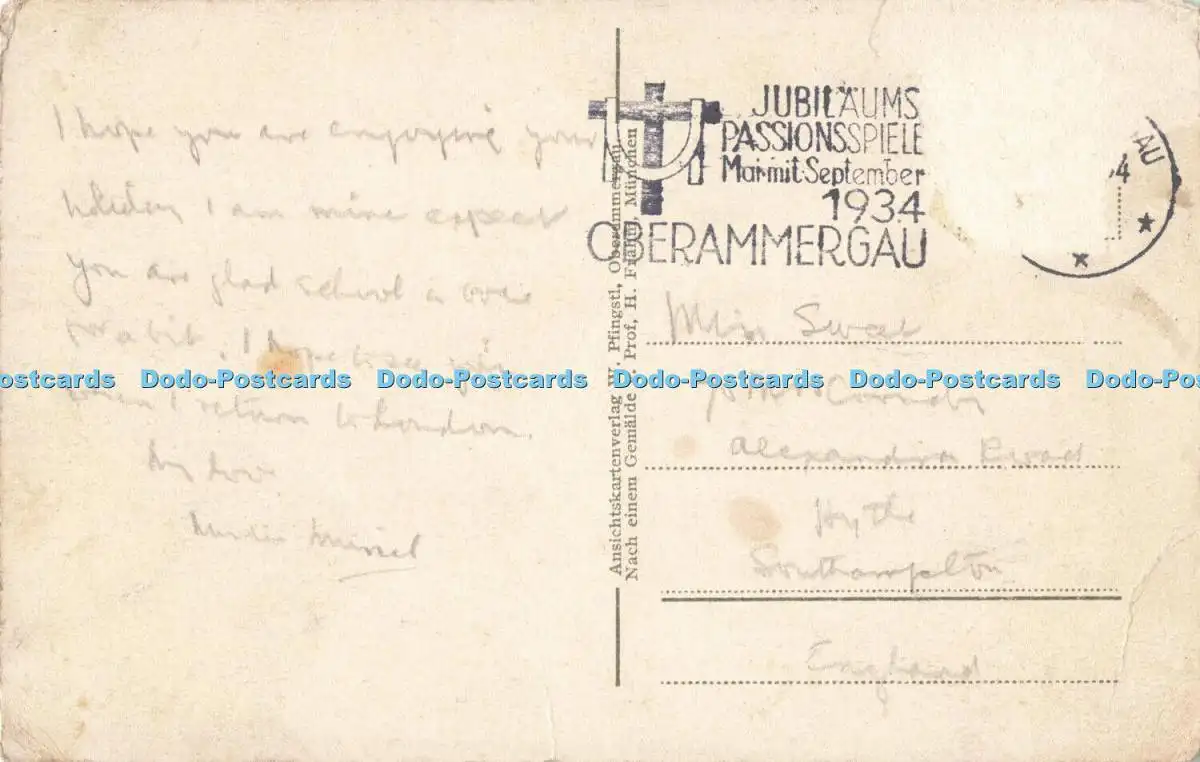 I hope you are enjoying your
holiday I am mine expect
you are glad school is over
for a bit. I hope to see you
when I return to London.
My love
JUBILÄUMS
PASSIONSSPIELE
Mai mit September
1934
OBERAMMERGAU
AU
4
Ansichtskartenverlag W. Pfingstl, Oberammergau.
Nach einem Gemälde Prof, H. München
Miss
Alexandra Road
Hythe
Southampton
England
Dodo-Postcards Dodo-Postcards Dodo-Postcards Dodo-Postcards Dodo-Postcards Dodo-Postcards